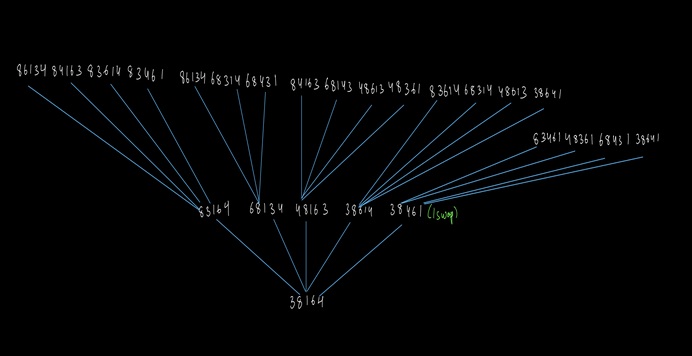 86134 84163 83614 83461 86134 68314 68431 84163 68143 48613 48361 83614 68314 48613 38641
83461 48361 68431 38641
83164 68134 48163 38614 38461 (1swap)
38164